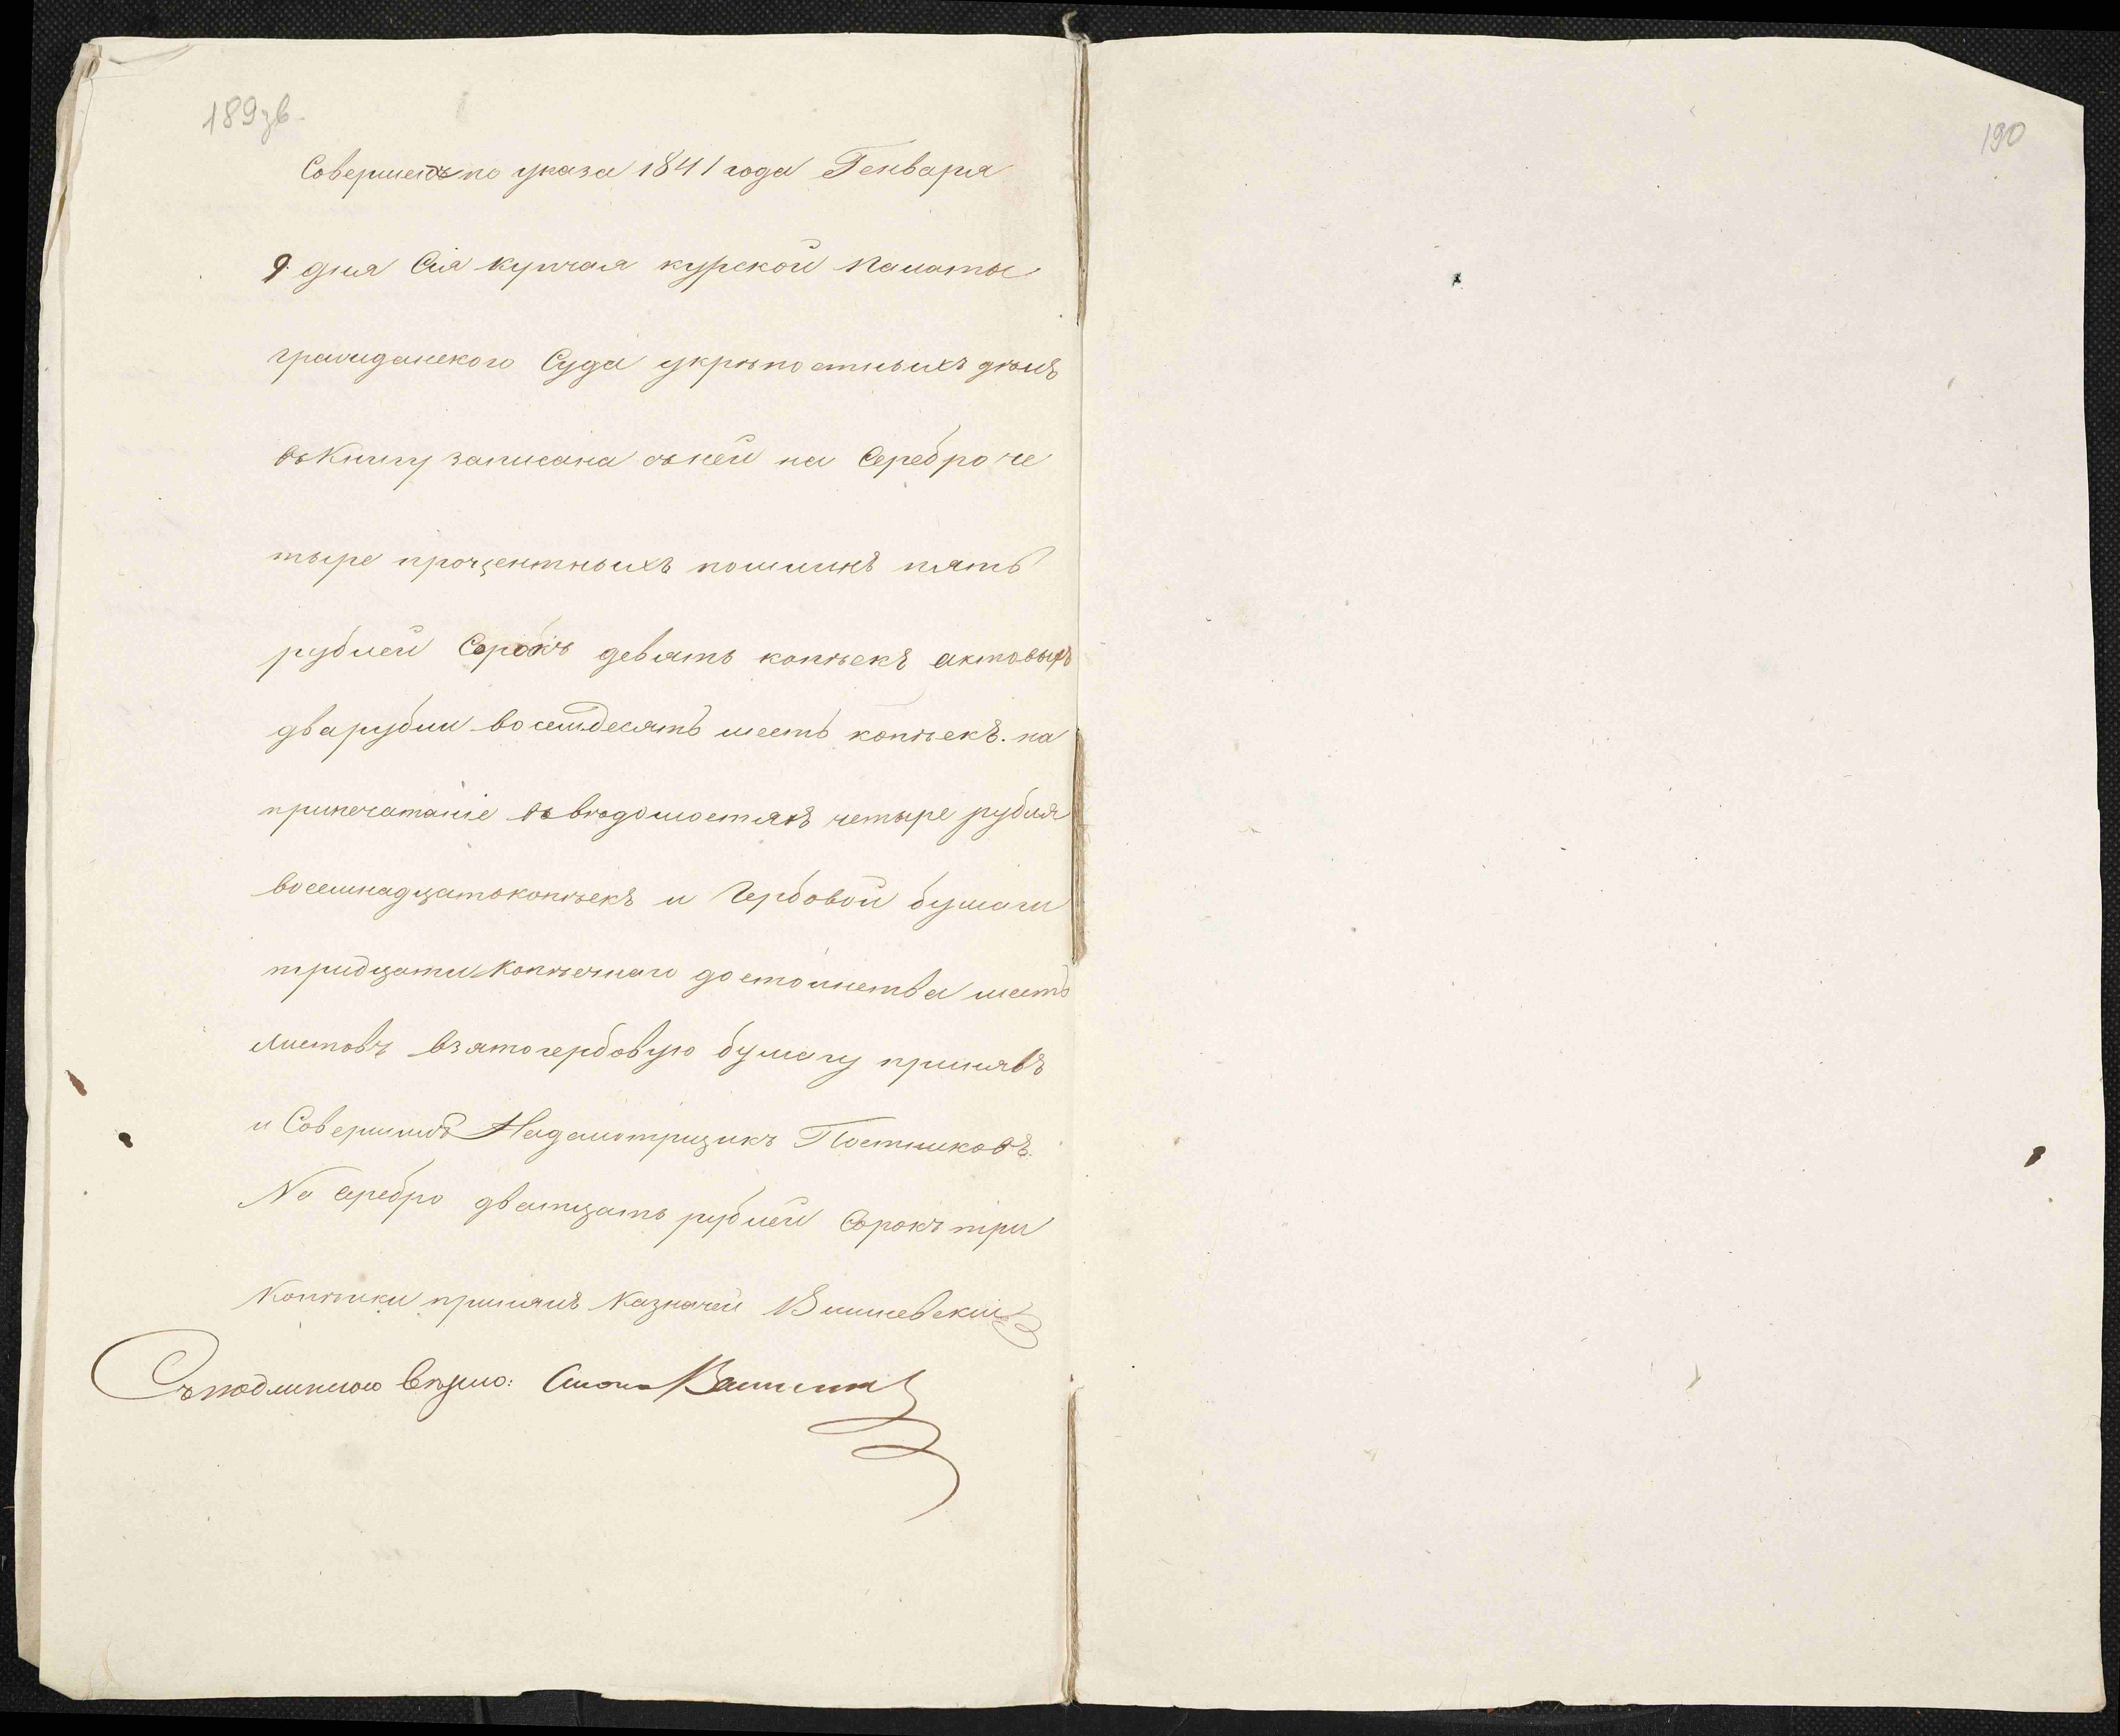 189 зв.
190
Совершена по указа 1841 года Генваря
9 дня Сія купчая курской палаты
гражданскаго Суда укрѣпостныхъ дѣлъ
въ Книгу записана сней на Серебро че
тыре процентныхъ пошлинъ пять
рублей Сорокъ девять копѣекъ актовыхъ
два рубли восемдесятъ шесть копѣекъ. на
припечатаніе въ вѣдомостяхъ четыре рубля
восемнадцать копѣекъ и Гербовой бумаги
тридцати Копѣечнаго достоинства шесть
листовъ взято гербовую бумагу принявъ
и Совершилъ Надсмотрщикъ Постниковъ.
На серебро дватцать рублей Сорокъ три
Копѣйки принялъ Казначей Вишневскій
Съ подлинною вѣрно: